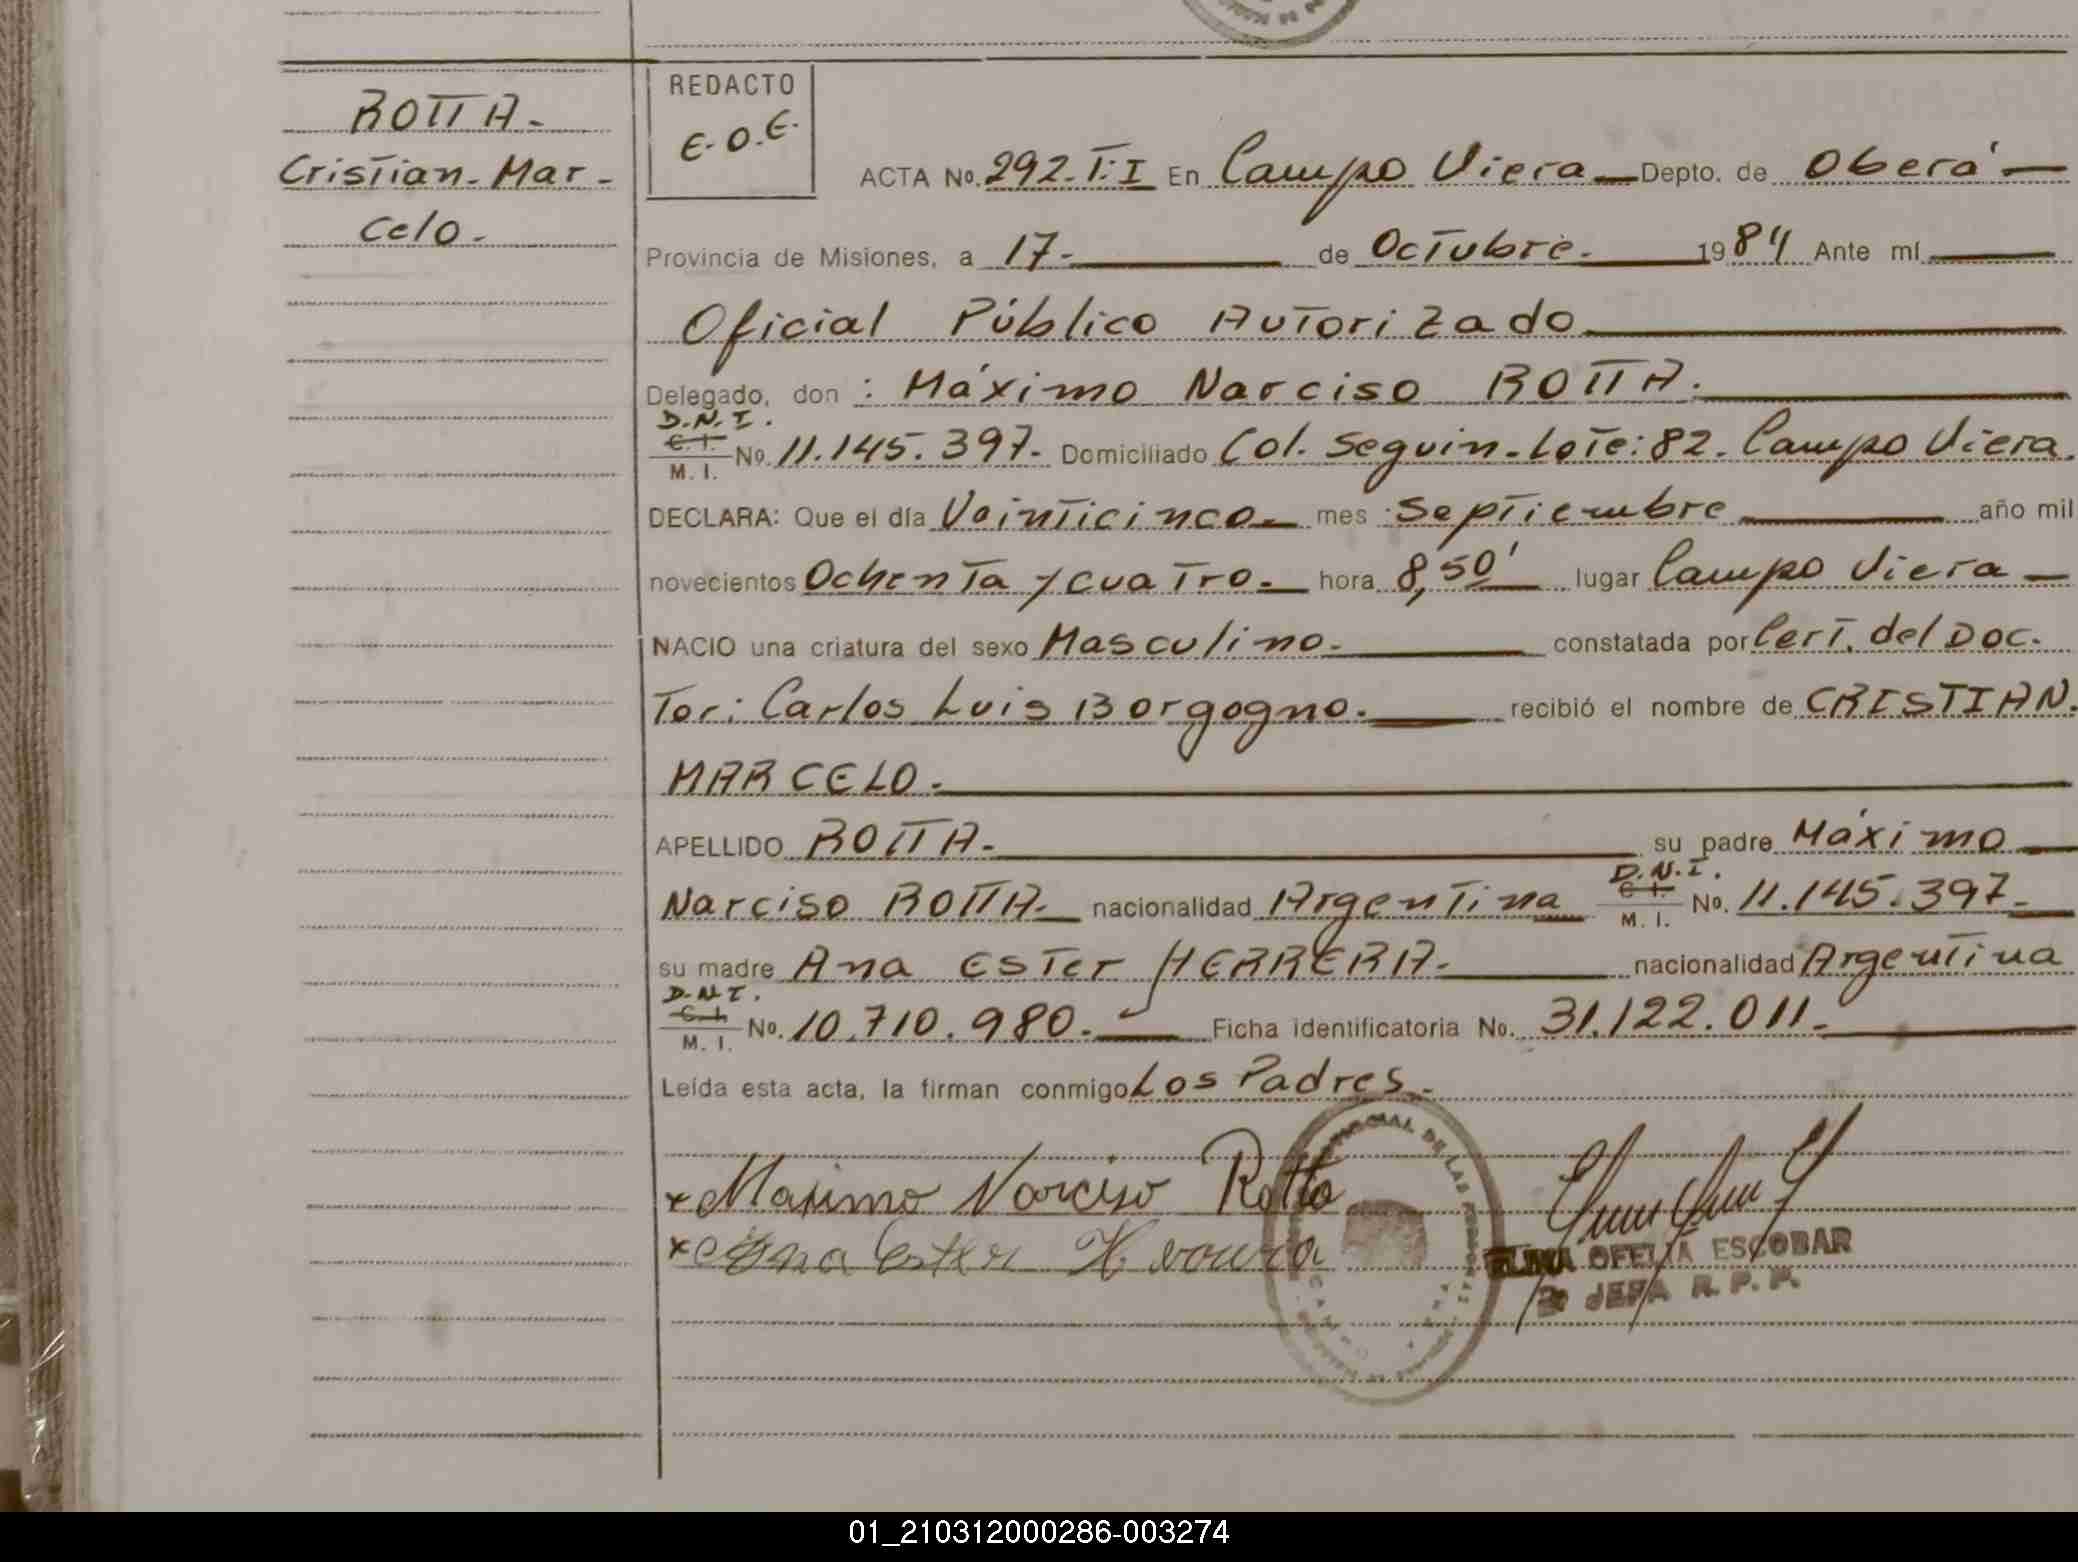 ROTTA.
Cristian. Mar-
celo.
REDACTO
E.O.E.
ACTA No. 292.T:I En Campo Viera Depto. de Oberá
Provincia de Misiones, a 17. de Octubre. 1984 Ante mí
Oficial Público Autorizado
Delegado, don : Máximo Narciso ROTTA.
D.N.I.
C.I.
M. I. No. 11.145.397. Domiciliado Col. Seguin. Lote: 82. Campo Viera.
DECLARA: Que el día Veinticinco. mes Septiembre año mil
novecientos Ochenta y cuatro. hora 8,50' lugar Campo Viera
NACIO una criatura del sexo Masculino. constatada por Cert. del Doc.
Tor: Carlos Luis Borgogno. recibió el nombre de CRISTIAN.
MARCELO.
APELLIDO ROTTA. su padre Máximo
Narciso ROTTA. nacionalidad Argentina D.N.I. C.I. M. I. No. 11.145.397.
su madre Ana Ester HERRERA. nacionalidad Argentina
D.N.I.
C.I.
M. I. No. 10.710.980. Ficha identificatoria No. 31.122.011.
Leída esta acta, la firman conmigo Los Padres.
x Maximo Narciso Rotta
x Ana Ester Herrera
PROVINCIAL DE LAS PERSONAS
ELINA OFELIA ESCOBAR
JEFA R. P. P.
01_210312000286-003274